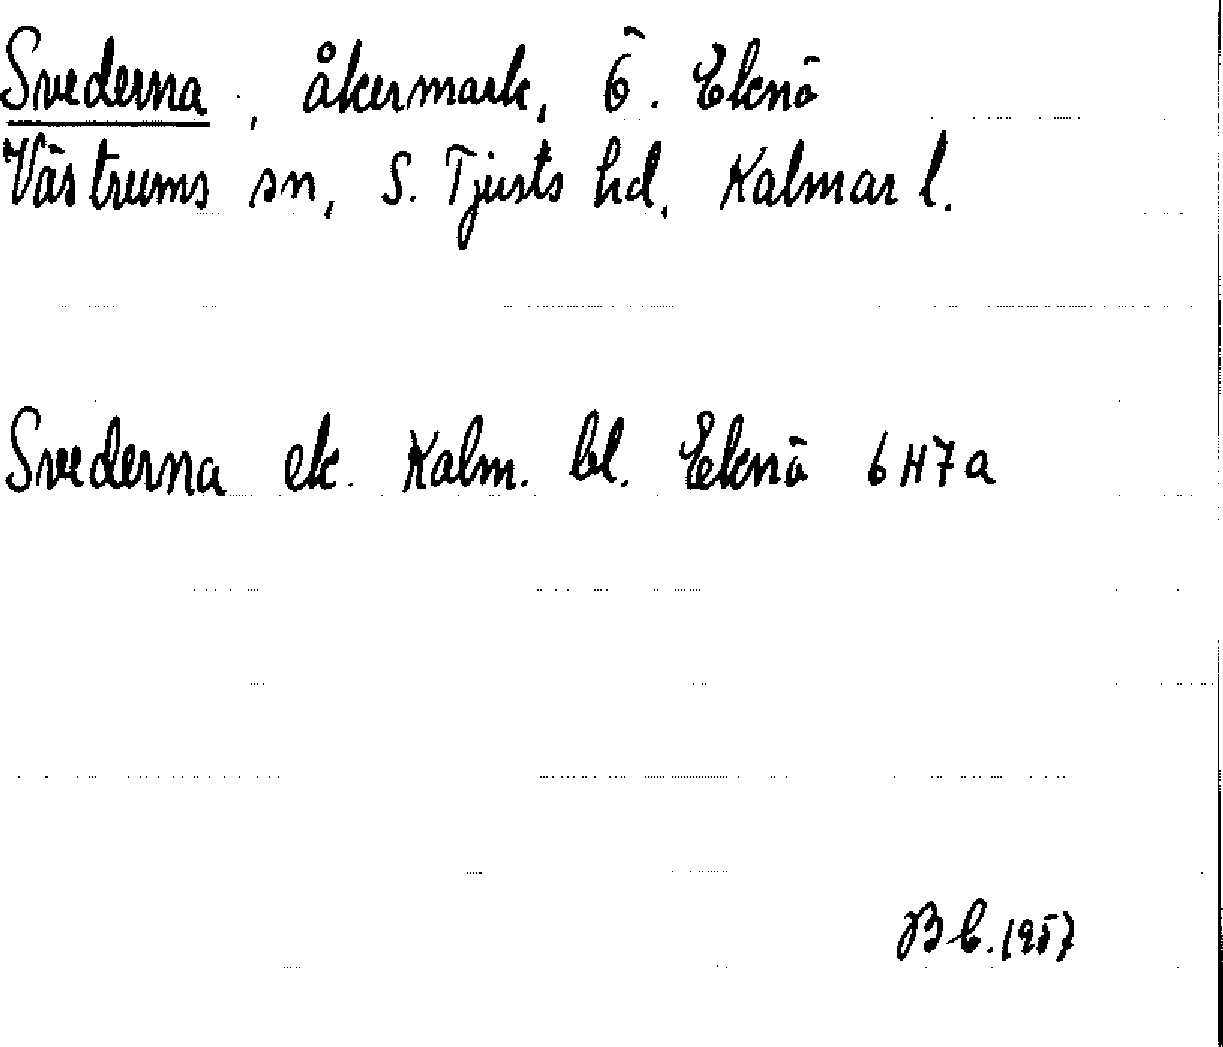 Svederna, åkermark, Ö. Eknö
Västrums sn, S. Tjusts hd, Kalmar l.
Svederna ek. Kalm. bl. Eknö 6H7a
B l. 1957